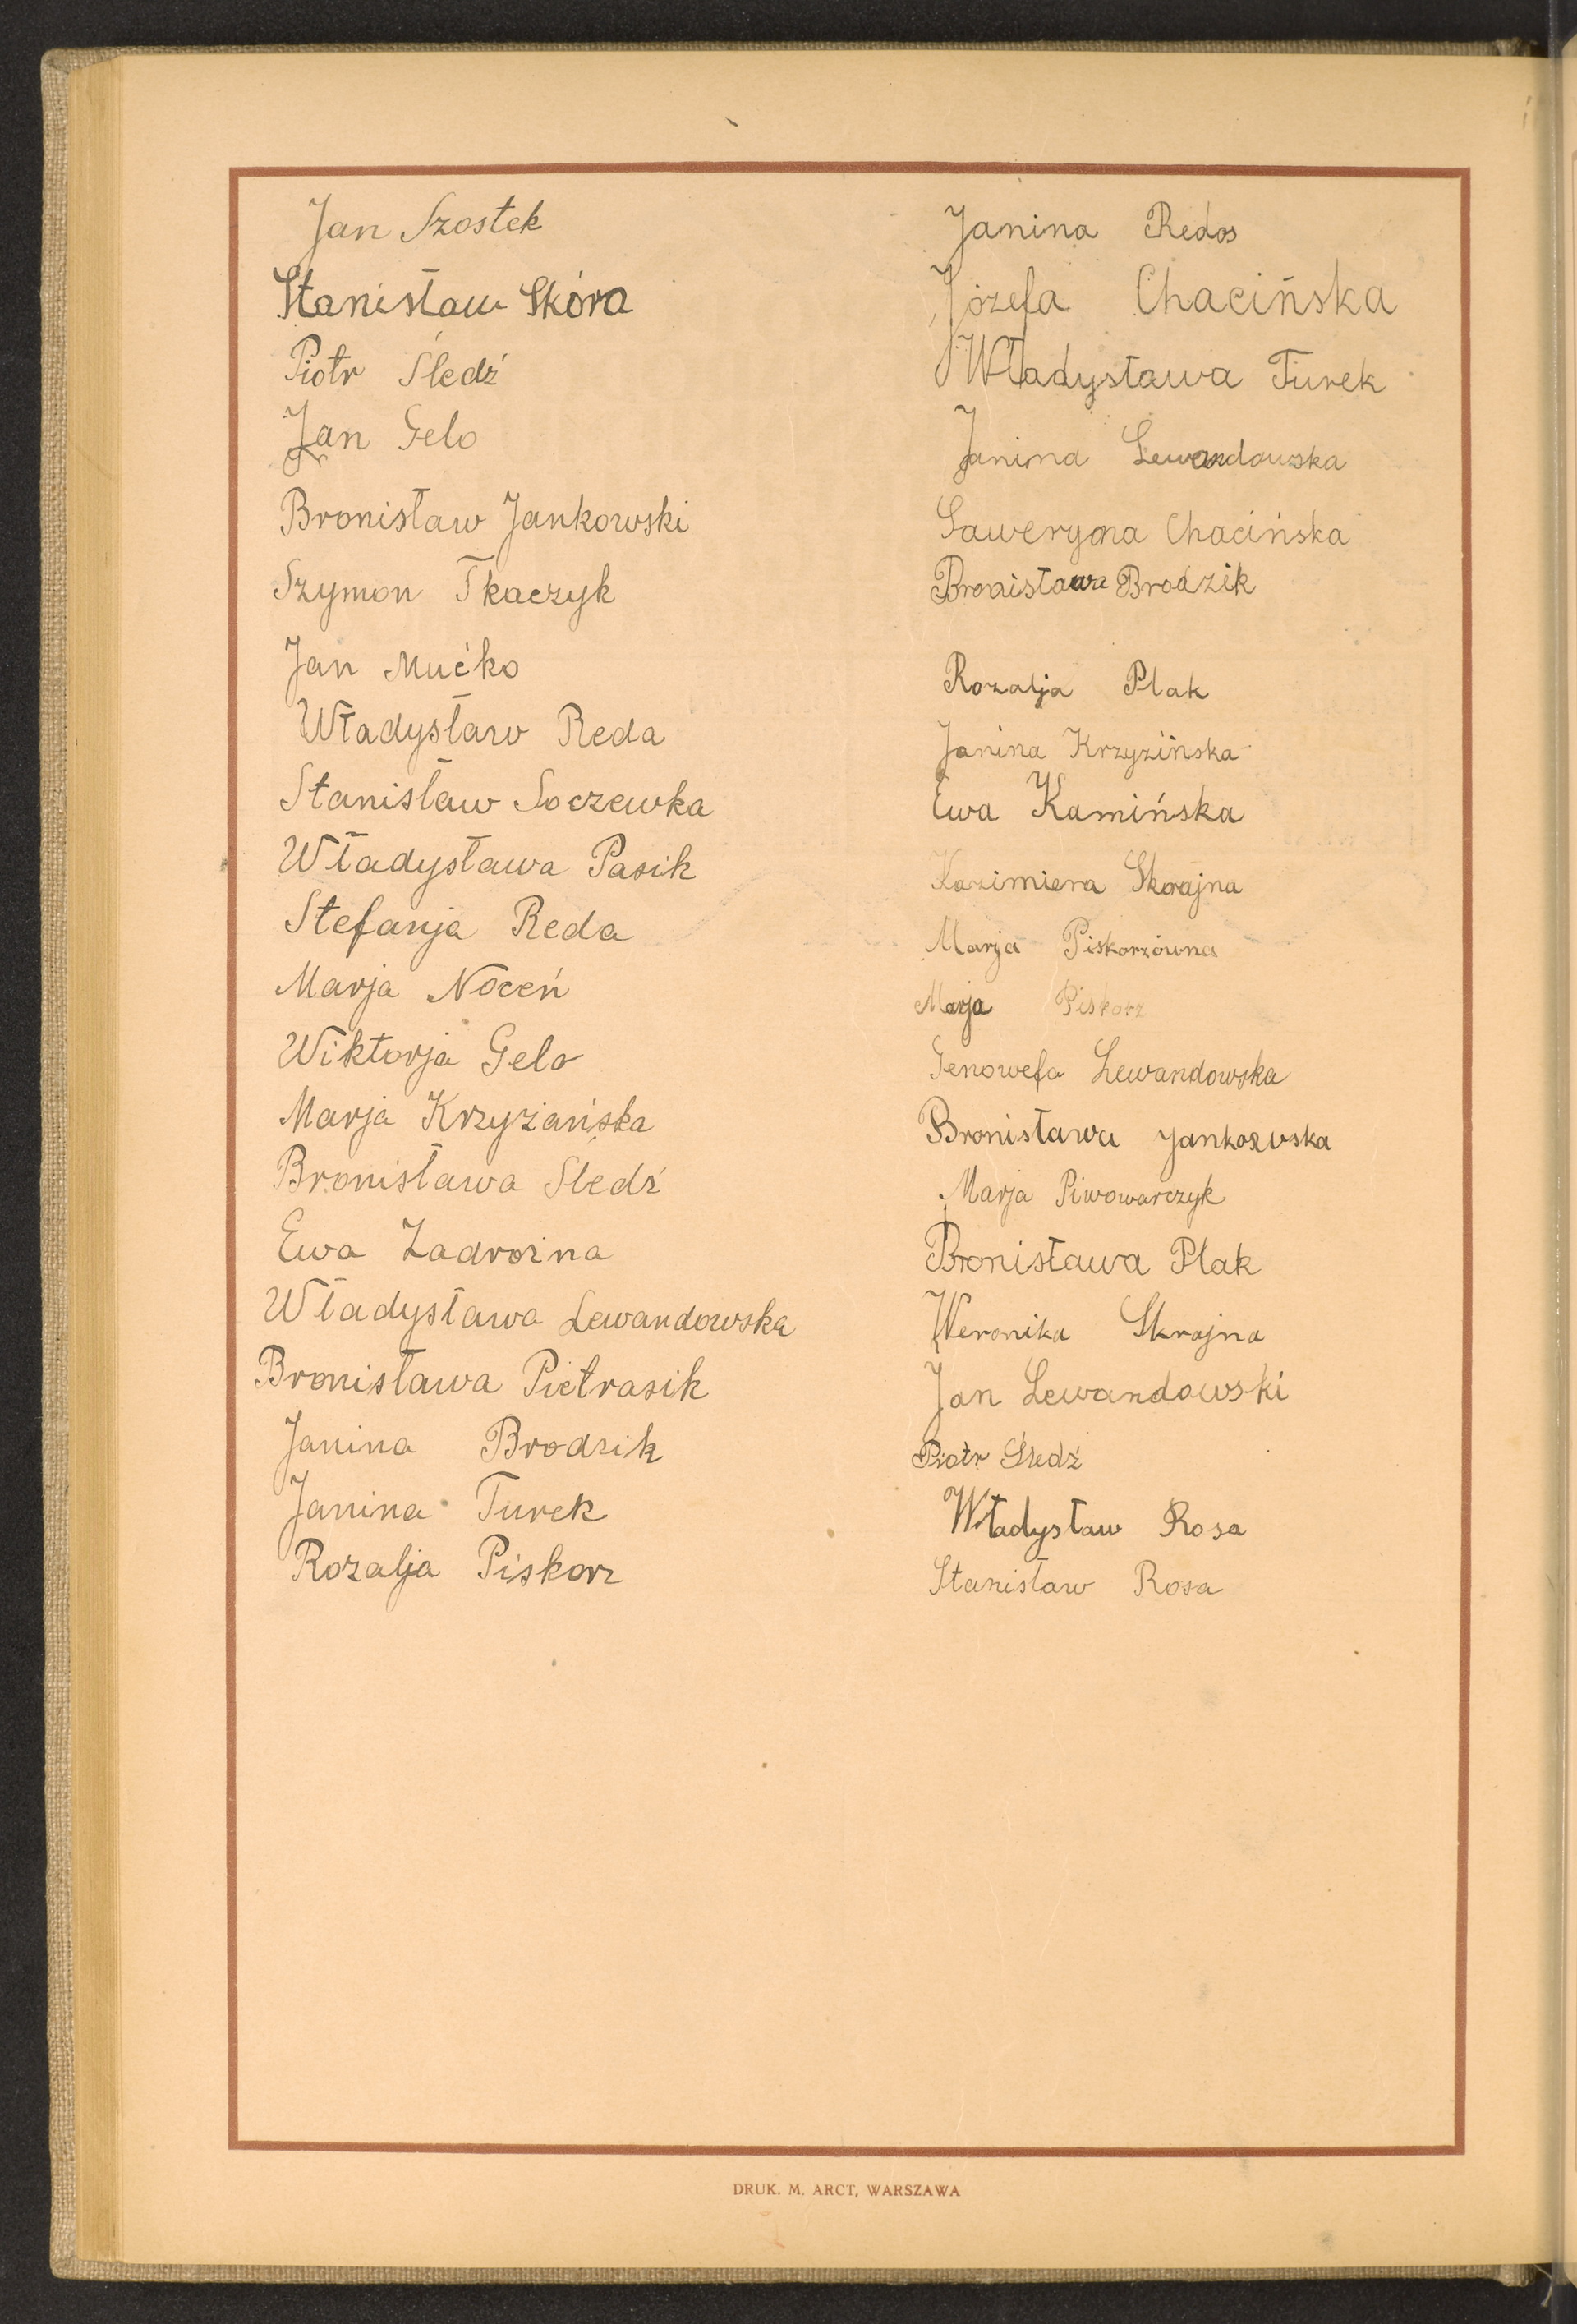 Jan Szostek
Stanisław Skóra
Piotr Śledź
Jan Gelo
Bronisław Jankowski
Szymon Tkaczyk
Jan Mućko
Władysław Reda
Stanisław Soczewka
Władysława Pasik
Stefanja Reda
Marja Noceń
Wiktorja Gelo
Marja Krzyżańska
Bronisława Śledź
Ewa Zadrożna
Władysława Lewandowska
Bronisława Pietrasik
Janina Brodzik
Janina Turek
Rozalja Piskorz
Janina Redos
Józefa Chacińska
Władysława Turek
Janina Lewandowska
Saweryna Chacińska
Bronisława Brodzik
Rozalja Ptak
Janina Krzyzińska
Ewa Kamińska
Kazimiera Skorajna
Marja Piskorzówna
Marja Piskorz
Genowefa Lewandowska
Bronisława Jankowska
Marja Piwowarczyk
Bronisława Ptak
Weronika Skrajna
Jan Lewandowski
Piotr Śledź
Władysław Rosa
Stanisław Rosa
DRUK. M. ARCT, WARSZAWA